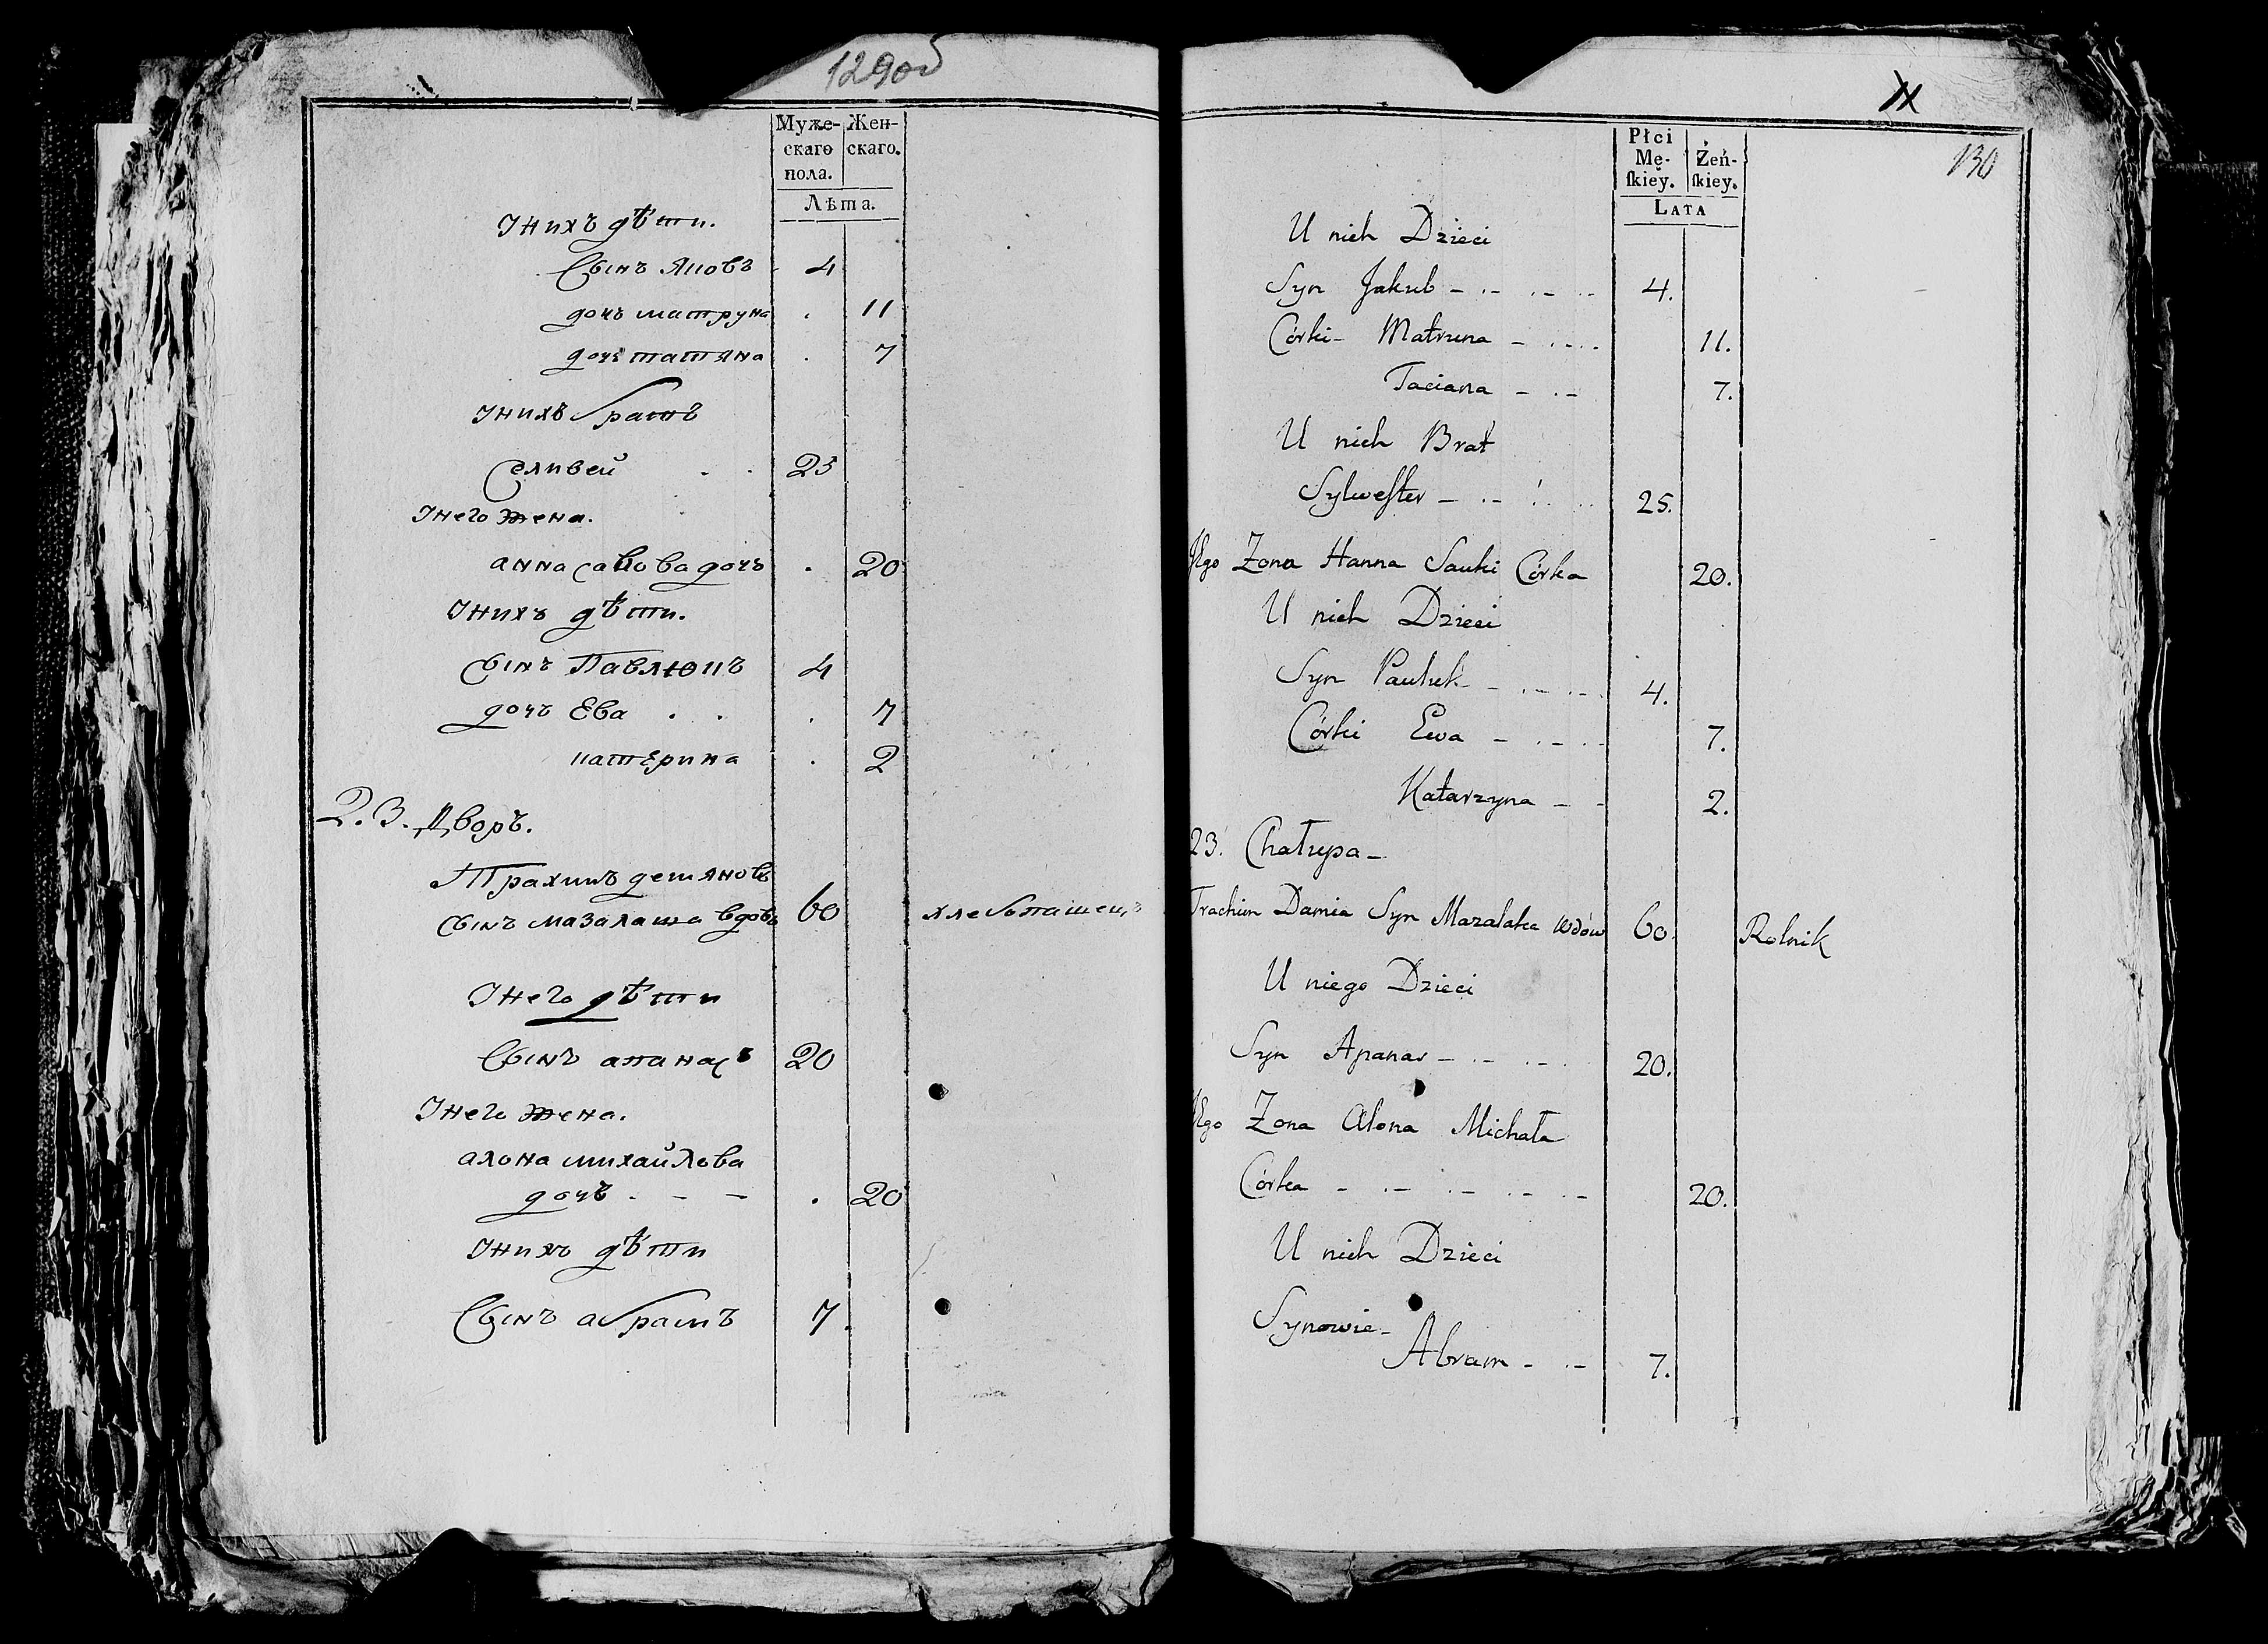 129об
Муже-
скаго
пола.
Жен-
скаго.
Лѣта.
Јнихъ дѣти.
Сынъ яковъ 4
дочъ матруна . 11
дочъ татяна . 7
Јнихъ братъ
Селивей . . 25
Јнего жена.
анна савова дочъ . 20
Јнихъ дѣти.
Сынъ Павлюкъ 4
дочъ Ева . . . 7
катерина . 2
23. Дворъ.
Трахимъ демяновъ
Сынъ мазалата вдовъ 60 хлебопашецъ
Јнего дѣти
Сынъ апанасъ 20
Јнего жена.
алона михайлова
дочъ . - - . 20
Јнихъ дѣти
Сынъ абрамъ 7.
130
Płci
Mę-
ſkiey.
Żeń-
ſkiey.
LATA
U nich Dzieci
Syn Jakub 4.
Córki Matruna 11.
Taciana 7.
U nich Brat
Sylweſter 25.
Jego Zona Hanna Sauki Córka 20.
U nich Dzieci
Syn Pauluk 4.
Córki Ewa 7.
Katarzyna 2.
23. Chałupa
Trachim Damia Syn Mazalaka Wdów 60. Rolnik
U niego Dzieci
Syn Apanas 20.
Jego Zona Alona Michała
Córka 20.
U nich Dzieci
Synowie
Abram 7.